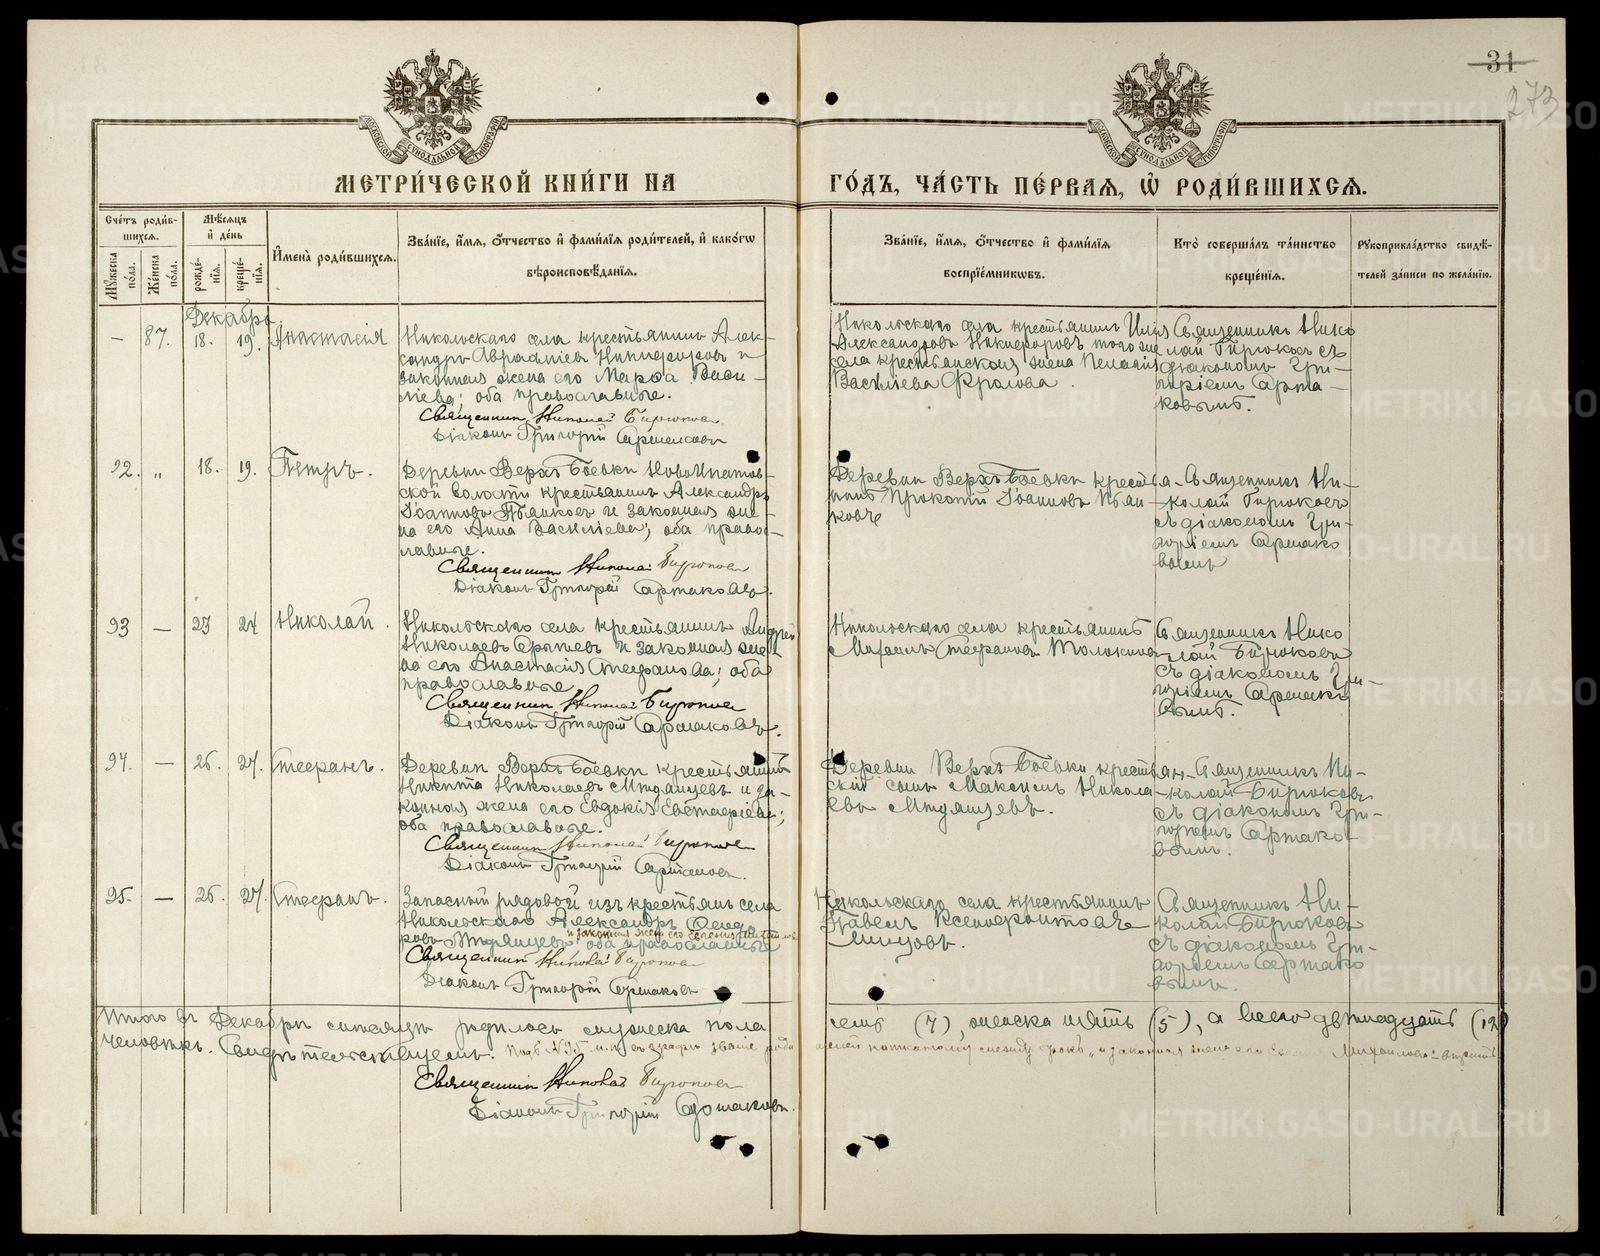 31
273
МЕТРИ́ЧЕСКОЙ КНИ́ГИ НА
ГО́ДЪ, ЧА́СТЬ ПЕ́РВАЯ, Ѡ҆ РОДИ́ВШИХСЯ.
Сче́тъ роди́в-
шихся.
Мꙋжеска по́ла.
Же́нска по́ла.
Мѣ́сяцъ
и҆ де́нь
рожде́-
нїя.
креще́-
нїя.
И҆мена̀ роди́вшихся.
Зва́нїе, и҆́мя, ѻ҆́тчество и҆ фами́лїя роди́телей, и҆ како́гѡ
вѣроисповѣ́данїя.
Зва́нїе, и҆́мя, ѻ҆́тчество и҆ фами́лїя
воспрїе́мникѡвъ.
Кто̀ соверша́лъ та́инство
креще́нїя.
Рꙋкоприкла́дство свидѣ́-
телей за́писи по жела́нїю.
Декабрь
— 87. 18. 19. Анастасія
Никольскаго села крестьянинъ Алек-
сандръ Никифоровъ и
законная жена его Марѳа Васи-
ліева; оба православные.
Священникъ Николай Бирюковъ
Діаконъ Григорій Ермаковъ
Никольскаго села крестьянинъ Илія
Александровъ Никифоровъ того же
села крестьянская жена Пелагія
Василіева Фролова.
Священникъ Нико
лай Бирюковъ съ
діакономъ Гри-
горіемъ Ерма-
ковымъ.
92. „ 18. 19. Петръ.
Деревни Верхъ Боевки Новоипатов-
ской волости крестьянинъ Александръ
Іоанновъ и законная же-
на его Анна Василіева; оба право-
славные.
Священникъ Николай Бирюковъ
Діаконъ Григорій Ермаковъ.
Деревни Верхъ Боевки крестья-
нинъ Прокопій Іоанновъ
Священникъ Ни-
колай Бирюковъ
съ діакономъ Гри-
горіемъ Ермако
вымъ
93 — 23 24 Николай.
Никольскаго села крестьянинъ Андрей
Николаевъ и законная же-
на его Анастасія Стефанова; оба
православные
Священникъ Николай Бирюковъ
Діаконъ Григорій Ермаковъ.
Никольскаго села крестьянинъ
Михаилъ Стефановъ
Священникъ Нико
лай Бирюковъ
съ діакономъ Гри-
горіемъ Ермако
вымъ.
94. — 26. 27. Стефанъ.
Деревни Верхъ Боевки крестьянинъ
Никита Николаевъ Мидянцевъ и за-
конная жена его Евдокія Евстафіева;
оба православные.
Священникъ Николай Бирюковъ
Діаконъ Григорій Ермаковъ.
Деревни Верхъ Боевки крестьян-
скій сынъ Максимъ Никола-
евъ Мидянцевъ.
Священникъ Ни-
колай Бирюковъ
съ діакономъ Гри-
горіемъ Ермако-
вымъ.
95. — 26. 27. Стефанъ.
Запасный рядовой изъ крестьянъ села
Никольскаго Александръ Ѳеодо
ровъ и законная жена его Михаилова
оба православные
Священникъ Николай Бирюковъ
Діаконъ Григорій Ермаковъ
Никольскаго села крестьянинъ
Павелъ Ксенофонтовъ
Священникъ Ни-
колай Бирюковъ
съ діакономъ Гри-
горіемъ Ермако
вымъ.
Итого въ Декабрѣ мѣсяцѣ родилось мужеска пола семь (7), женска пять (5), а всего двѣнадцать (12)
человѣкъ. Свидѣтельствуемъ. написанному между строкъ „и законная жена его Михаилова
Священникъ Николай Бирюковъ
Діаконъ Григорій Ермаковъ.
METRIKI.GASO-URAL.RU